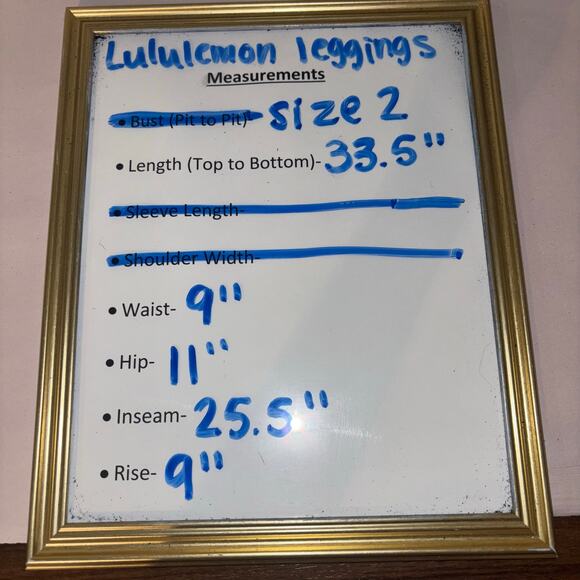 Lululemon leggings
Measurements
• Bust (Pit to Pit)- size 2
• Length (Top to Bottom)- 33.5"
• Sleeve Length-
• Shoulder Width-
• Waist- 9"
• Hip- 11"
• Inseam- 25.5"
• Rise- 9"